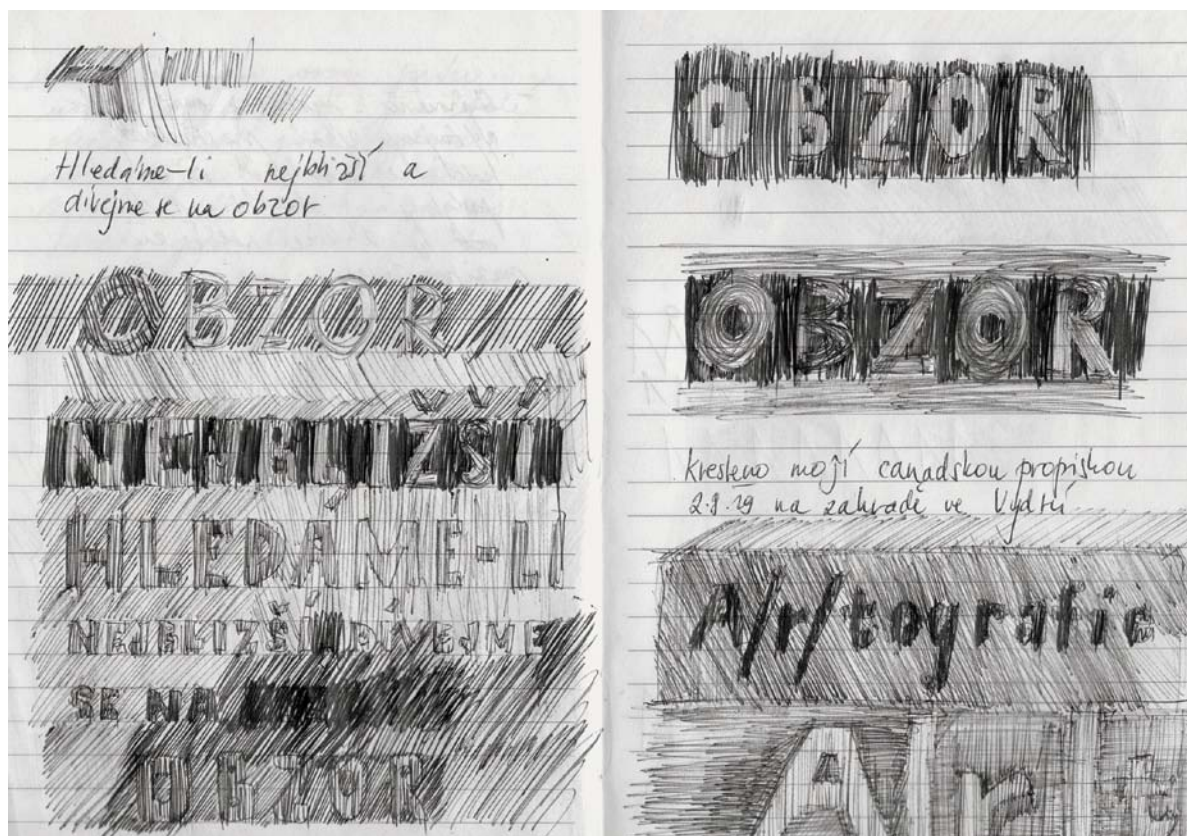 Hledáme-li nejbližší a
dívejme se na obzor
OBZOR
NEJBLIŽŠÍ
HLEDÁME-LI
NEJBLIŽŠÍ A DÍVEJME
SE NA
OBZOR
OBZOR
OBZOR
kresleno mojí canadskou propiskou
na zahradě ve Vydří
A/r/tografie
A/r/t